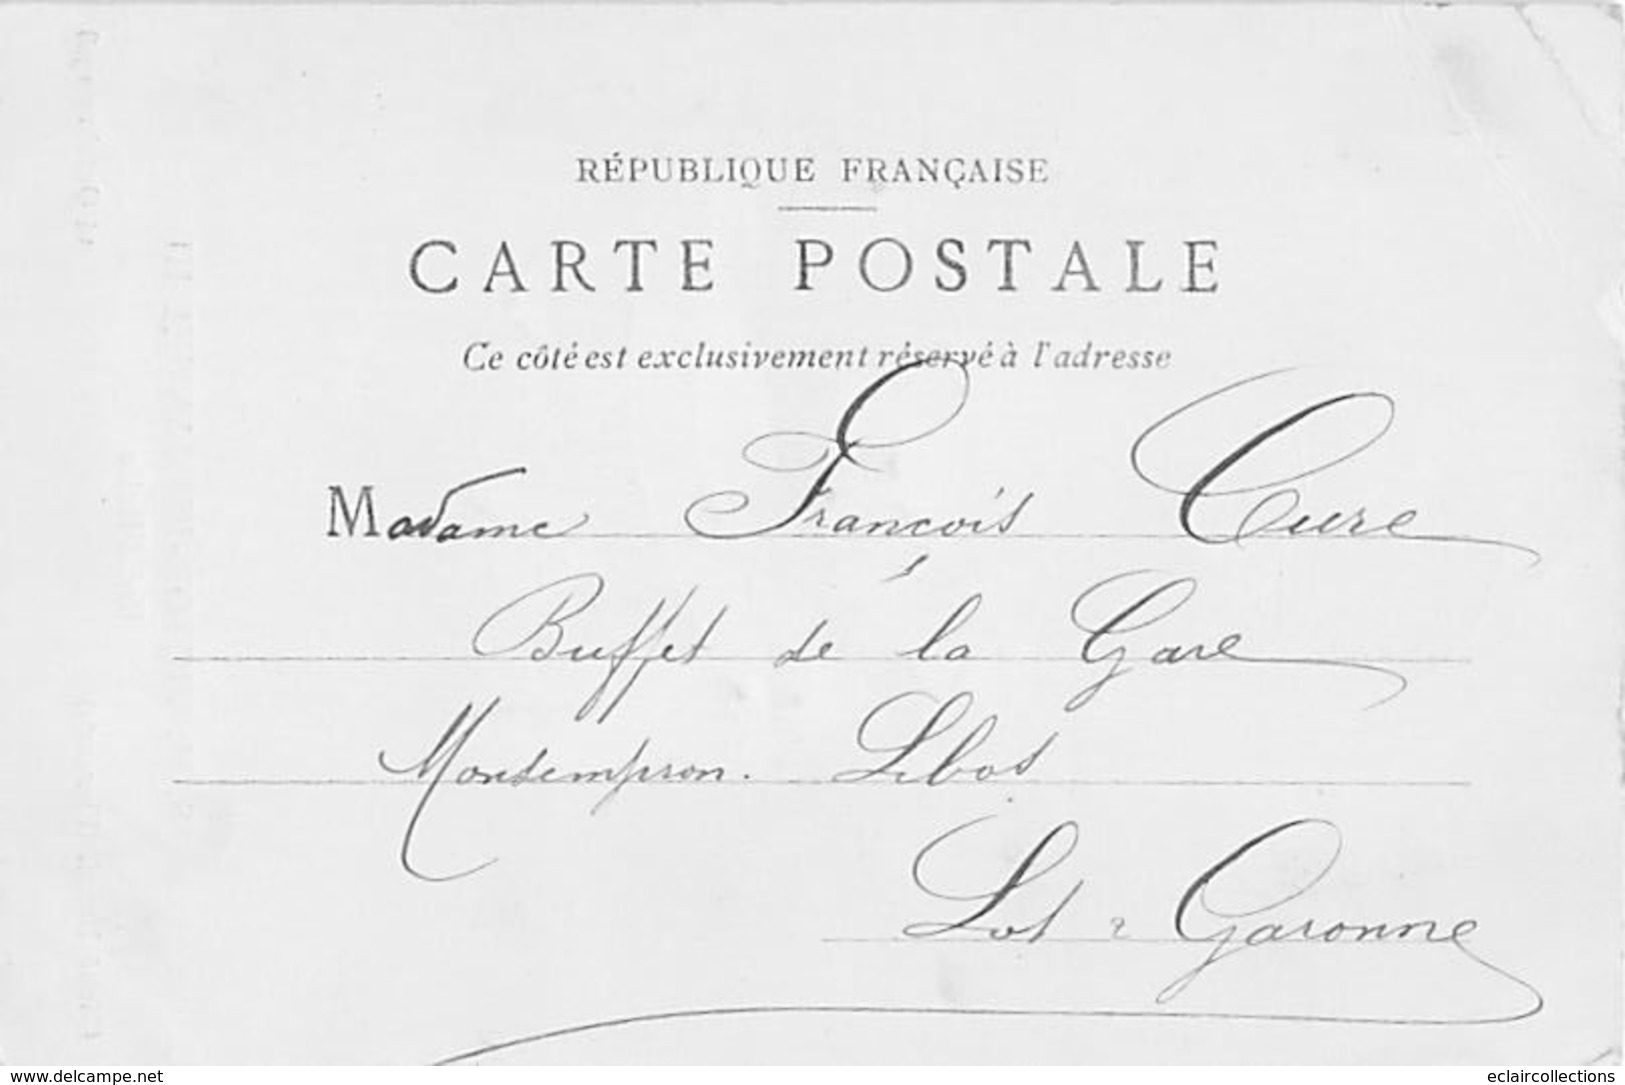 RÉPUBLIQUE FRANÇAISE
CARTE POSTALE
Ce côté est exclusivement réservé à l'adresse
Madame François Cure
Buffet de la Gare
Montempron. Libos
Lot & Garonne
www.delcampe.net
eclaircollections